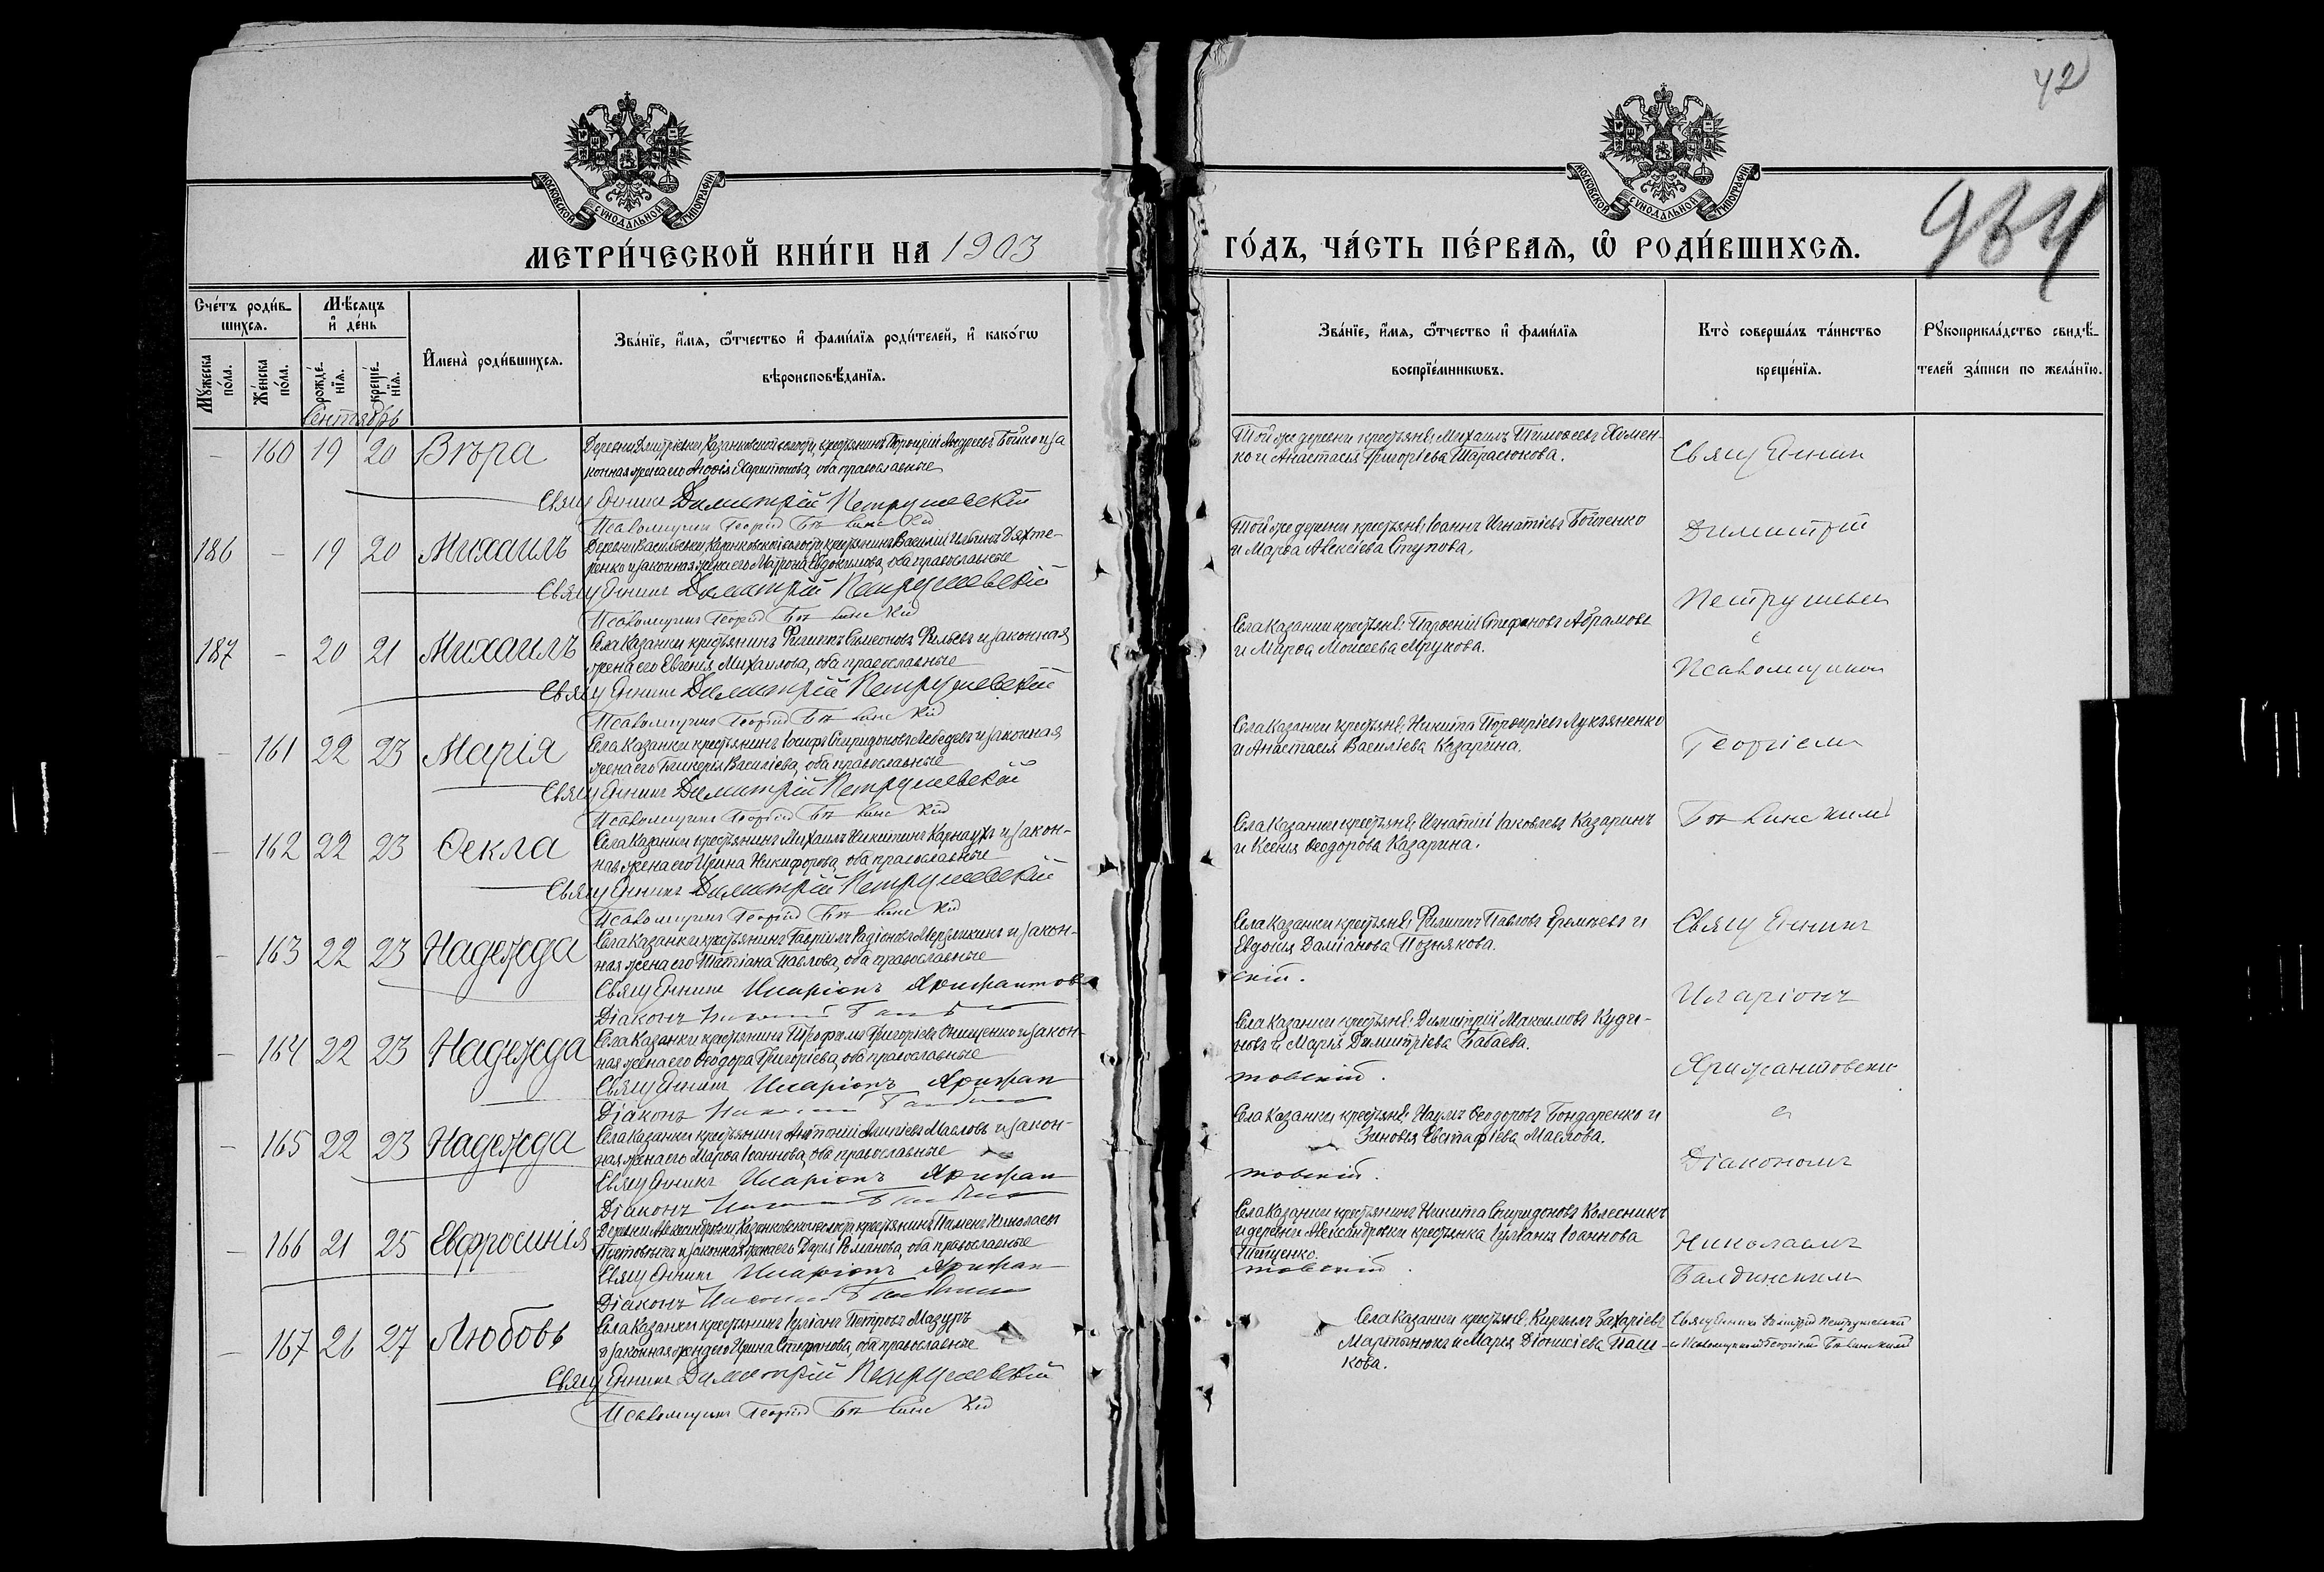 42
934
МОСКОВСКОЙ СѴНОДАЛЬНОЙ ТИПОГРАФІИ
МОСКОВСКОЙ СѴНОДАЛЬНОЙ ТИПОГРАФІИ
МЕТРИ́ЧЕСКОЙ КНИ́ГИ НА 1903
ГО́ДЪ, ЧА́СТЬ ПЕ́РВАѦ, Ѿ РОДИ́ВШИХСѦ.
Сче́тъ роди́в-
шихсѧ.
Мѣ́сѧцъ
и҆ де́нь
Мꙋ́жеска
по́ла.
Же́нска
по́ла.
рожде́-
нїѧ.
креще́-
нїѧ.
И҆мена̀ роди́вшихсѧ.
Зва́нїе, и҆́мѧ, ѻ҆́тчество и҆ фами́лїѧ роди́телей, и҆ како́гѡ
вѣроисповѣ́данїѧ.
Зва́нїе, и҆́мѧ, ѻ҆́тчество и҆ фами́лїѧ
воспрїе́мникѡвъ.
Кто̀ соверша́лъ та́инство
креще́нїѧ.
Рꙋкоприкла́дство свидѣ́-
телей за́писи по жела́нїю.
Сентябрь
— 160 19 20 Вѣра
Деревни Дмитріевки Казанковской волости, крестьянинъ Порфирій Андреевъ Бойко и за
конная жена его Агафія Харитонова, оба православные
Священникъ Димитрій Петрушевскій
Псаломщикъ Георгій
Той же деревни крестьяне: Михаилъ Тимофеевъ Хомен-
ко и Анастасія Григоріева Тарасюкова.
186 — 19 20 Михаилъ
Деревни Васильевки, Казанковской волости, крестьянинъ Василій Ильинъ Дяхте-
ренко и законная жена его Матрона Евдокимова, оба православные
Священникъ Димитрій Петрушевскій
Псаломщикъ Георгій
Той же деревни крестьяне: Іоаннъ Игнатіевъ Бойченко
и Марѳа Алексіева Ступова.
187 — 20 21 Михаилъ
Села Казанки крестьянинъ Филиппъ Симеоновъ Фильевъ и законная
жена его Евгенія Михаилова, оба православные
Священникъ Димитрій Петрушевскій
Псаломщикъ Георгій
Села Казанки крестьяне: Парѳеній Стефановъ Абрамовъ
и Марѳа Моисеева Мрукова.
— 161 22 23 Марія
Села Казанки крестьянинъ Іосифъ Спиридоновъ Лебедевъ и законная
жена его Гликерія Василіева, оба православные
Священникъ Димитрій Петрушевскій
Псаломщикъ Георгій
Села Казанки крестьяне: Никита Порфиріевъ Лукьяненко
и Анастасія Василіева Казарина.
— 162 22 23 Ѳекла
Села Казанки крестьянинъ Михаилъ Никитинъ Карнаухъ и закон-
ная жена его Ирина Никифорова, оба православные
Священникъ Димитрій Петрушевскій
Псаломщикъ Георгій
Села Казанки крестьяне: Игнатій Іаковлевъ Казаринъ
и Ксенія Ѳеодорова Казарина.
— 163 22 23 Надежда
Села Казанки крестьянинъ Гавріилъ Радіоновъ Мерзликинъ и закон-
ная жена его Татіана Павлова, оба православные
Священникъ Иларіонъ Хрисантов
скій.
Діаконъ
Села Казанки крестьяне: Филиппъ Павловъ Еремѣевъ и
Евдокія Даміанова Познякова.
— 164 22 23 Надежда
Села Казанки крестьянинъ Трофимъ Григоріевъ Онищенко и закон-
ная жена его Ѳеодора Григоріева, оба православные
Священникъ Иларіонъ Хрисан
товскій.
Діаконъ
Села Казанки крестьяне: Димитрій Максимовъ Куди-
новъ и Марія Димитріева Бабаева.
— 165 22 23 Надежда
Села Казанки крестьянинъ Антоній Масловъ и закон-
ная жена его Марѳа Іоаннова, оба православные
Священникъ Иларіонъ Хрисан
товскій.
Діаконъ
Села Казанки крестьяне: Наумъ Ѳеодоровъ Бондаренко и
Зиновія Евстафіева Маслова.
— 166 21 25 Евфросинія
Деревни Александровки Казанковской волости крестьянинъ Пименъ Николаевъ
и законная жена его Дарія Романова, оба православные
Священникъ Иларіонъ Хрисан
товскій.
Діаконъ
Села Казанки крестьянинъ Никита Спиридоновъ Колесникъ
и деревни Александровки крестьянка Іуліанія Іоаннова
— 167 26 27 Любовь
Села Казанки крестьянинъ Іуліанъ Петровъ Мазуръ
и законная жена его Ирина Стефанова, оба православные
Священникъ Димитрій Петрушевскій
Псаломщикъ Георгій
Села Казанки крестьяне: Кириллъ Захаріевъ
Мартынюкъ и Марія Діонисіева Паш-
кова.
Священник
Димитрій
Петрушевс
с
Псаломщиком
Георгіем
Священникъ
Иларіонъ
с
Діакономъ
Николаемъ
Балдинскимъ
Священникъ Димитрій Петрушевскій
и Псаломщикомъ Георгіемъ